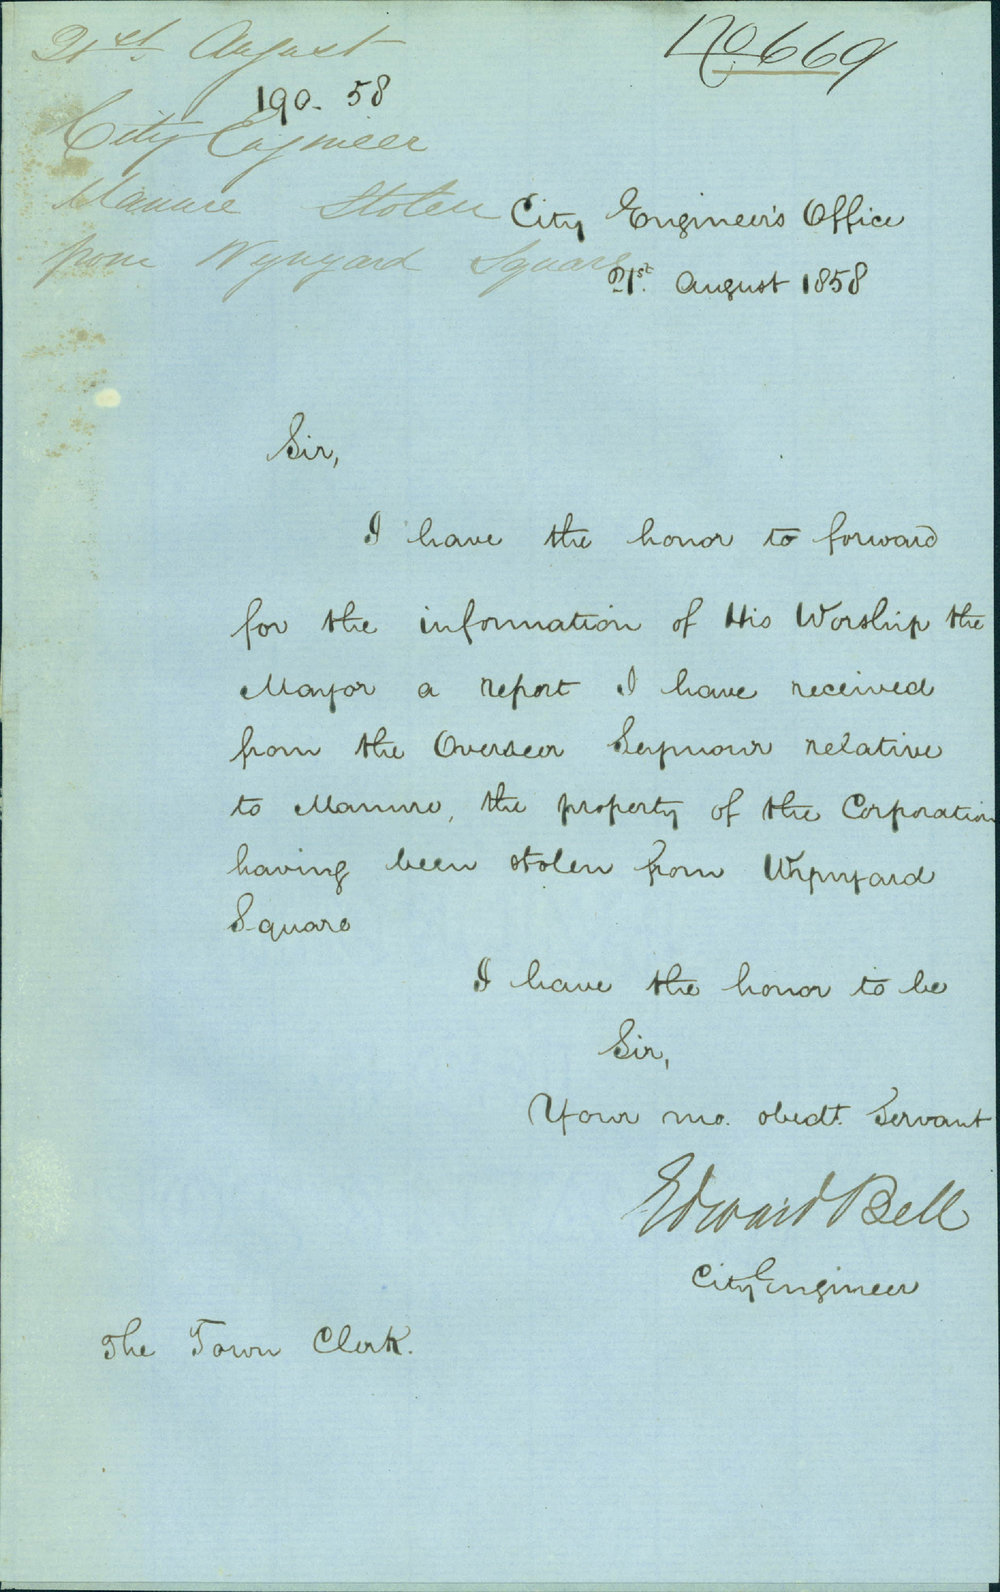 21st. August
No 669
190. 58
City Engineer
Manure Stolen
from Wynyard Square
City Engineer's Office
21st. August 1858
Sir,
I have the honor to forward
for the information of His Worship the
Mayor a report I have received
from the Overseer Seymour relative
to Manure, the property of the Corporation
having been stolen from Wynyard
Square
I have the honor to be
Sir,
Your mo. obedt. Servant
Edward Bell
City Engineer
The Town Clerk.